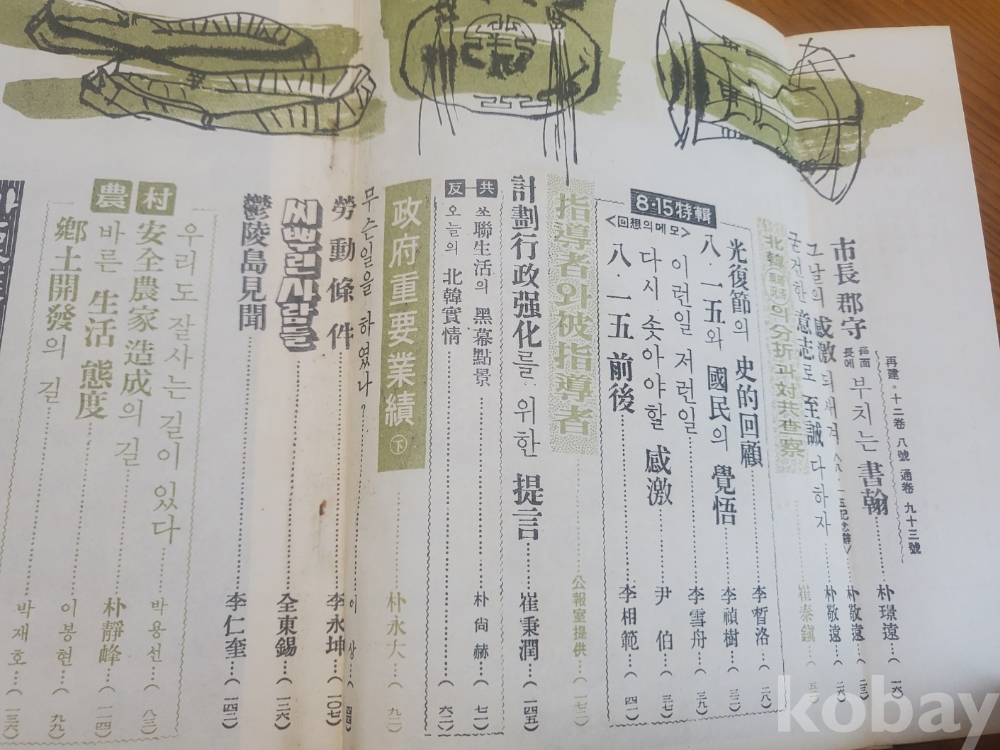 再建·十二卷 八號 通卷 九十三號
市長 郡守 邑面長에 부치는 書翰……朴璟遠…(一六)
그날의 感激 되새겨……朴敬遠…(二三)
굳건한 意志로 至誠 다하자……朴敬遠…(二六)
의 分析과 対共査察……崔泰鎭
8·15特輯
光復節의 史的回顧……李晳洛…(二八)
八·一五와 國民의 覺悟……李禎樹…(三三)
<回想의메모>
이런일 저런일……李雪舟…(三九)
다시 솟아야할 感激……尹 伯…(三七)
八·一五 前後……李相範…(四一)
指導者와 被指導者……公報室提供…(一七二)
計劃行政强化를 위한 提言……崔秉潤…(一四五)
反共
쏘聯生活의 黑幕點景……朴尙赫…(七一)
오늘의 北韓實情……(六二)
政府重要業績 下……朴永大…(九二)
무슨일을 하였나?……이 상…(四四)
勞動條件……李永坤…(一〇七)
씨뿌린사람들……全東錫…(一三六)
鬱陵島見聞……李仁奎…(一四二)
農村
우리도 잘사는 길이 있다……박용선…(八三)
安全農家 造成의 길……朴靜峰…(一一四)
바른 生活 態度……이봉현…(九九)
鄕土開發의 길……박재호…(一三六)
kobay